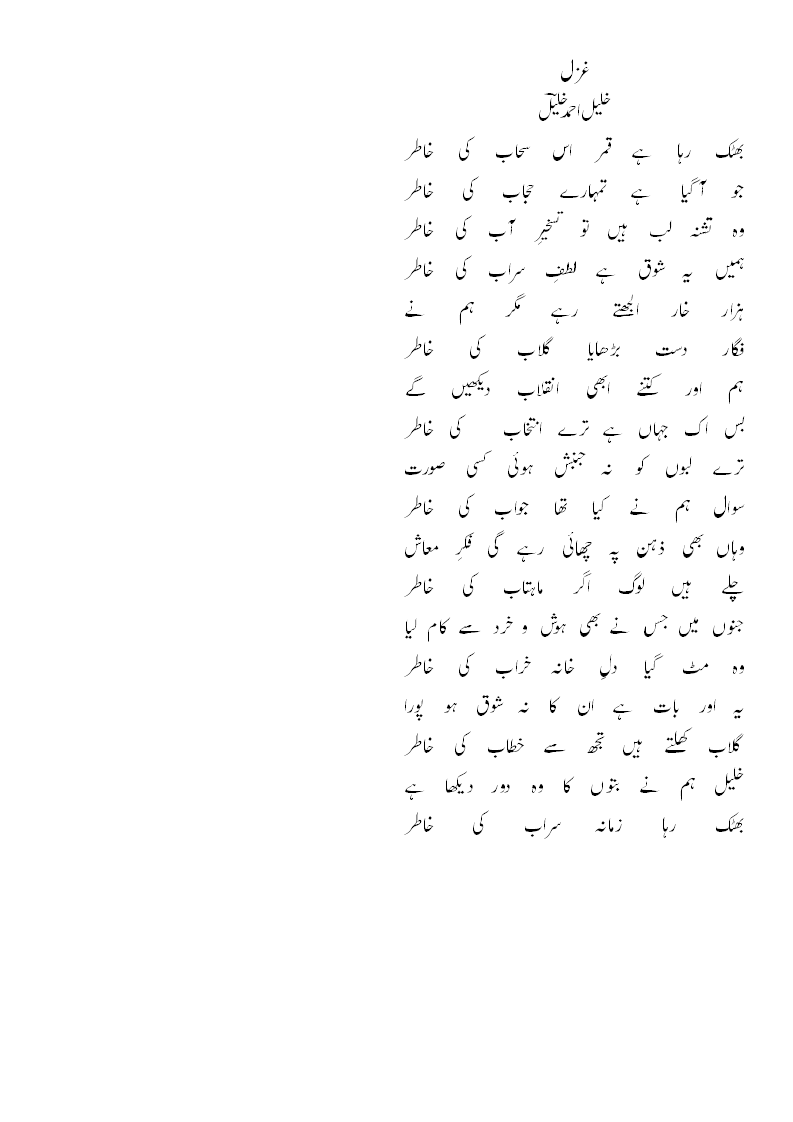 غزل
خلیل احمد خلیلؔ
بھٹک رہا ہے قمر اس سحاب کی خاطر
جو آ گیا ہے تمہارے حجاب کی خاطر
وہ تشنہ لب ہیں تو تسخیرِ آب کی خاطر
ہمیں یہ شوق ہے لطفِ سراب کی خاطر
ہزار خار الجھتے رہے مگر ہم نے
فگار دست بڑھایا گلاب کی خاطر
ہم اور کتنے ابھی انقلاب دیکھیں گے
بس اک جہاں ہے ترے انتخاب کی خاطر
ترے لبوں کو نہ جنبش ہوئی کسی صورت
سوال ہم نے کیا تھا جواب کی خاطر
وہاں بھی ذہن پہ چھائی رہے گی فکرِ معاش
چلے ہیں لوگ اگر ماہتاب کی خاطر
جنوں میں جس نے بھی ہوش و خرد سے کام لیا
وہ مٹ گیا دلِ خانہ خراب کی خاطر
یہ اور بات ہے ان کا نہ شوق ہو پورا
گلاب کھلتے ہیں تجھ سے خطاب کی خاطر
خلیل ہم نے بتوں کا وہ دور دیکھا ہے
بھٹک رہا زمانہ سراب کی خاطر